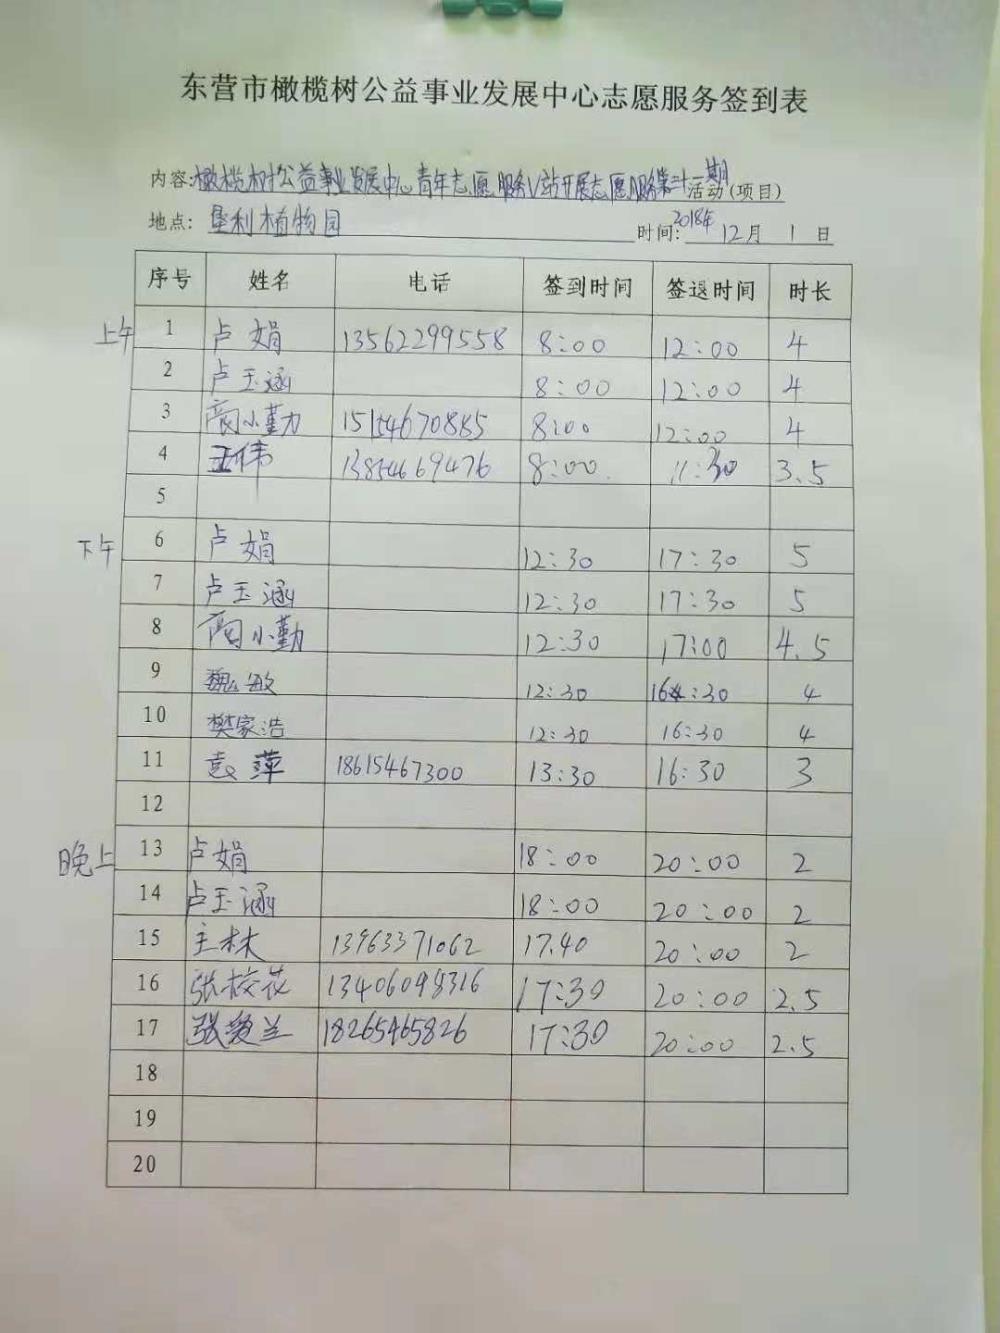 东营市橄榄树公益事业发展中心志愿服务签到表
内容:橄榄树公益事业发展中心青年志愿服务V站开展志愿服务第三十一期活动(项目)
地点: 垦利植物园 时间: 2018年12月1日
序号 姓名 电话 签到时间 签退时间 时长
上午 1 卢娟 13562299558 8:00 12:00 4
2 卢玉涵 8:00 12:00 4
3 高小勤 15154670885 8:00 12:00 4
4 王伟 13854669476 8:00 11:30 3.5
5
下午 6 卢娟 12:30 17:30 5
7 卢玉涵 12:30 17:30 5
8 高小勤 12:30 17:00 4.5
9 魏敏 12:30 16:30 4
10 樊家浩 12:30 16:30 4
11 袁萍 18615467300 13:30 16:30 3
12
晚上 13 卢娟 18:00 20:00 2
14 卢玉涵 18:00 20:00 2
15 王林 13963371062 17.40 20:00 2
16 张校花 13406098316 17:30 20:00 2.5
17 张爱兰 18265465826 17:30 20:00 2.5
18
19
20